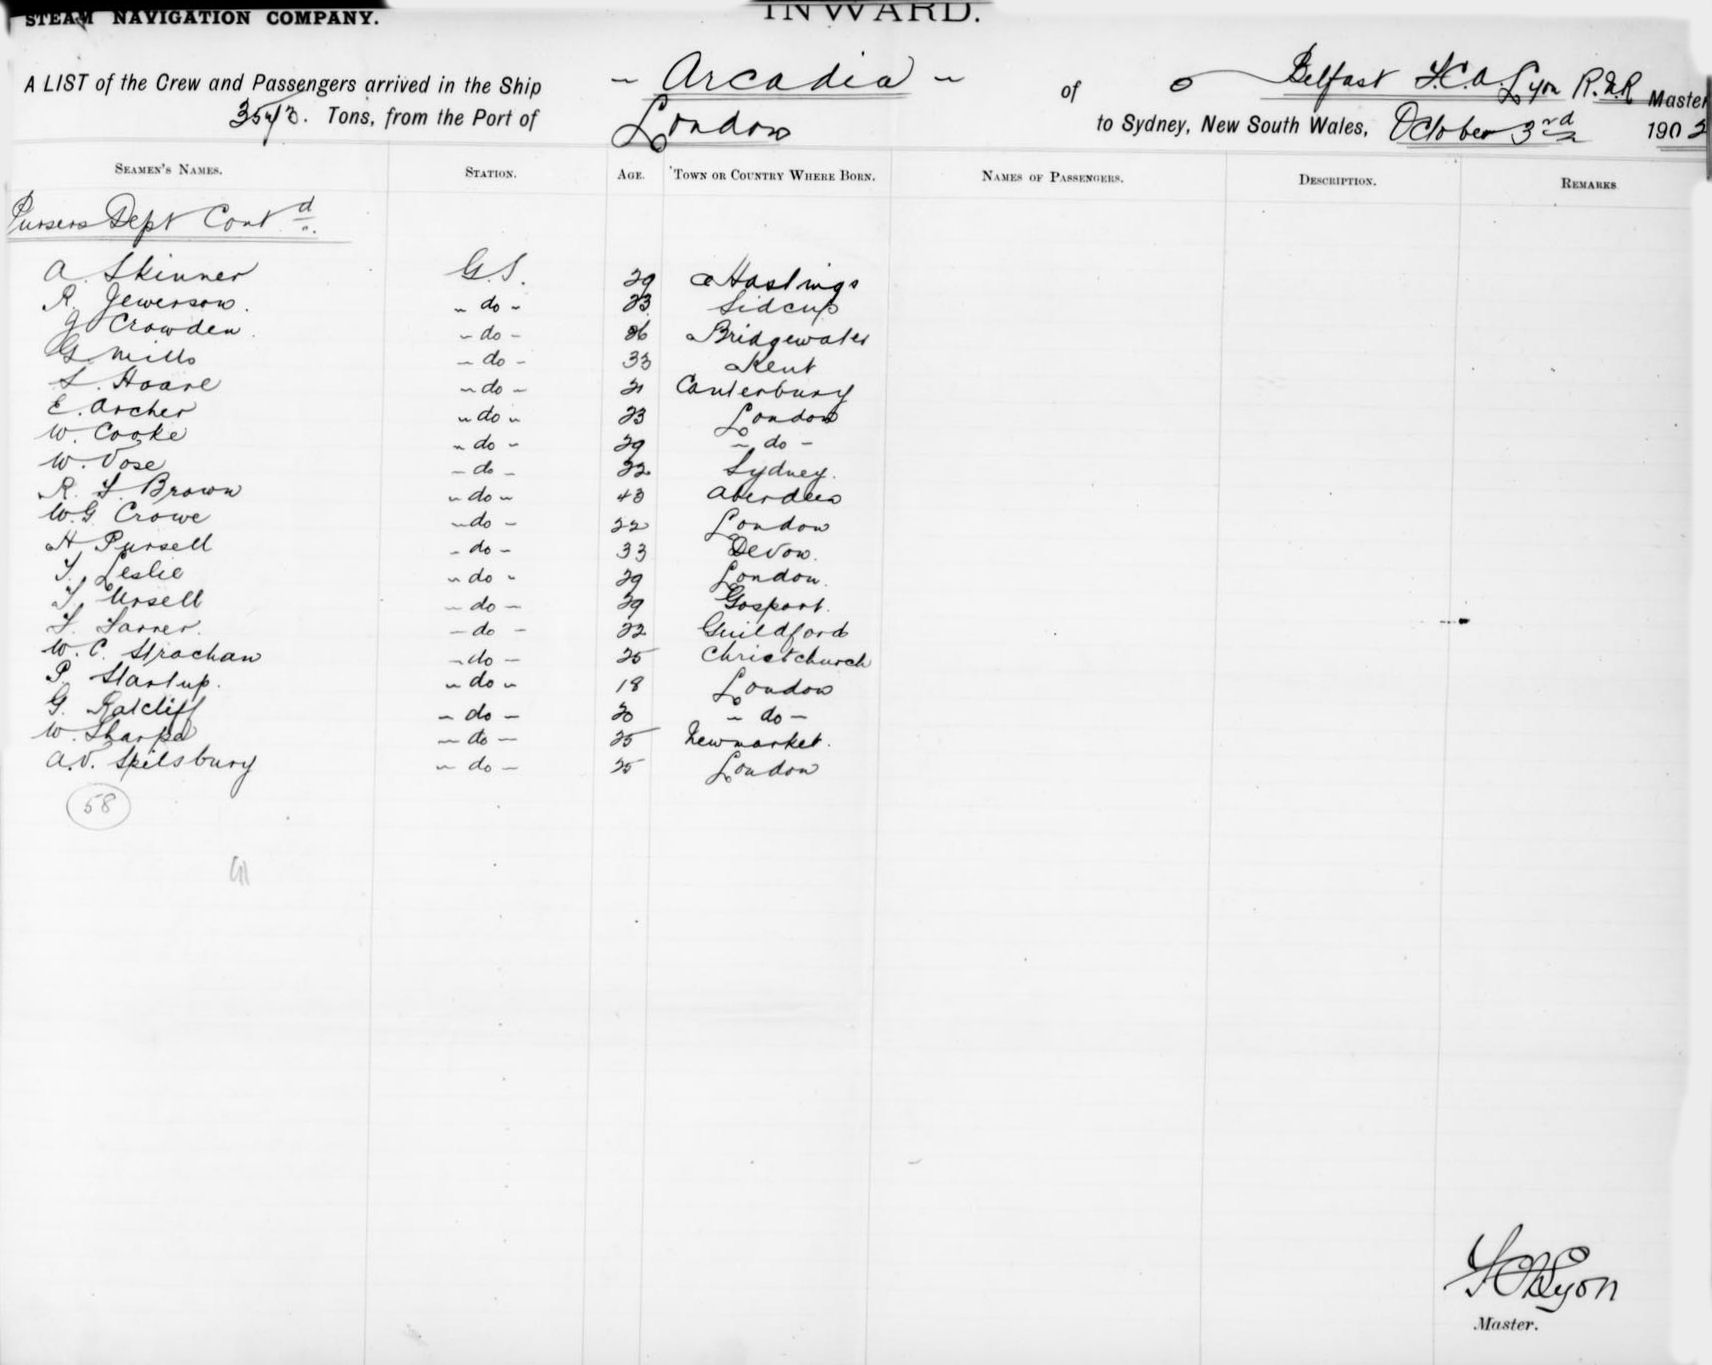 STEAM NAVIGATION COMPANY. INWARD.
A LIST of the Crew and Passengers arrived in the Ship ~ Arcadia ~ of Belfast F.C.A. Lyon R.N.R Master
Tons, from the Port of London to Sydney, New South Wales, October 3rd 1902
SEAMEN'S NAMES. STATION. AGE. TOWN OR COUNTRY WHERE BORN. NAMES OF PASSENGERS. DESCRIPTION. REMARKS
Pursers Dept Contd.
A. Skinner G.S. 29 Hastings
R. Jewerson. - do - 23 Sidcup
J Crowden. - do - 26 Bridgewater
G. Mills - do - 33 Kent
S. Hoare - do - 21 Canterbury
E. Archer - do - 23 London
W. Cooke - do - 29 - do -
W. Vose - do - 22 Sydney.
R. F. Brown - do - 43 Aberdeen
W.G. Crowe - do - 22 London
H Pursell - do - 33 Devon.
T. Leslie - do - 29 London.
T Ursell - do - 29 Gosport.
F. Farrer. - do - 22 Guildford
W. C. Strachan - do - 25 Christchurch
P. Startup. - do - 18 London
G. Ratcliff - do - 20 - do -
W. Sharpe - do - 25 Newmarket.
A.V. Spilsbury - do - 25 London
58
F C A Lyon
Master.